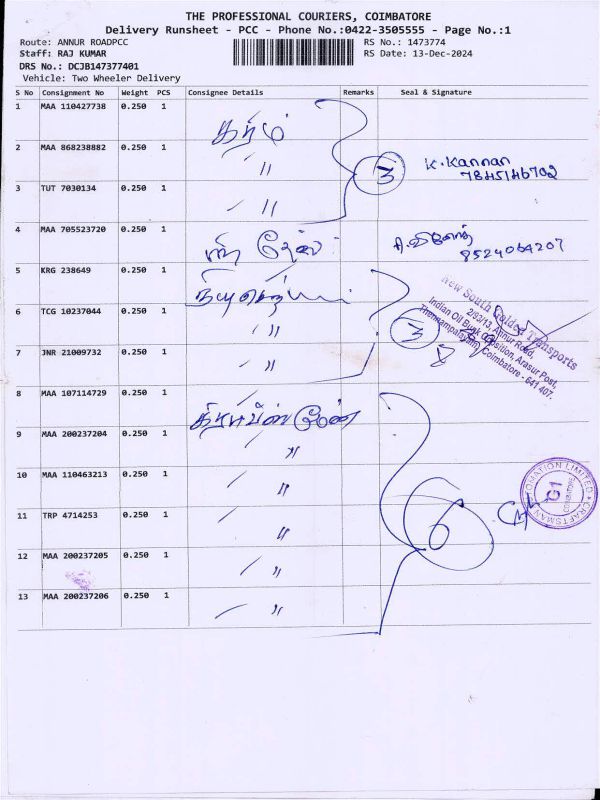 THE PROFESSIONAL COURIERS, COIMBATORE
Delivery Runsheet - PCC - Phone No.:0422-3505555 - Page No.:1
Route: ANNUR ROADPCC
RS No.: 1473774
Staff: RAJ KUMAR
RS Date: 13-Dec-2024
DRS No.: DCJB147377401
Vehicle: Two Wheeler Delivery
S No Consignment No Weight PCS Consignee Details Remarks Seal & Signature
1 MAA 110427738 0.250 1
2 MAA 868238882 0.250 1 "
3
K. Kannan
7845146702
3 TUT 7030134 0.250 1 "
4 MAA 705523720 0.250 1
8524064207
5 KRG 238649 0.250 1
6 TCG 10237044 0.250 1 "
3
New South Golden Transports
2/83/13, Annur Road,
Indian Oil Bunk Opposition, Arasur Post,
Thennampalayam, Coimbatore - 641 407.
7 JNR 21009732 0.250 1 "
8 MAA 107114729 0.250 1
9 MAA 200237204 0.250 1 "
10 MAA 110463213 0.250 1 "
6
CRAFTSMAN AUTOMATION LIMITED
G1
COIMBATORE
11 TRP 4714253 0.250 1 "
12 MAA 200237205 0.250 1 "
13 MAA 200237206 0.250 1 "